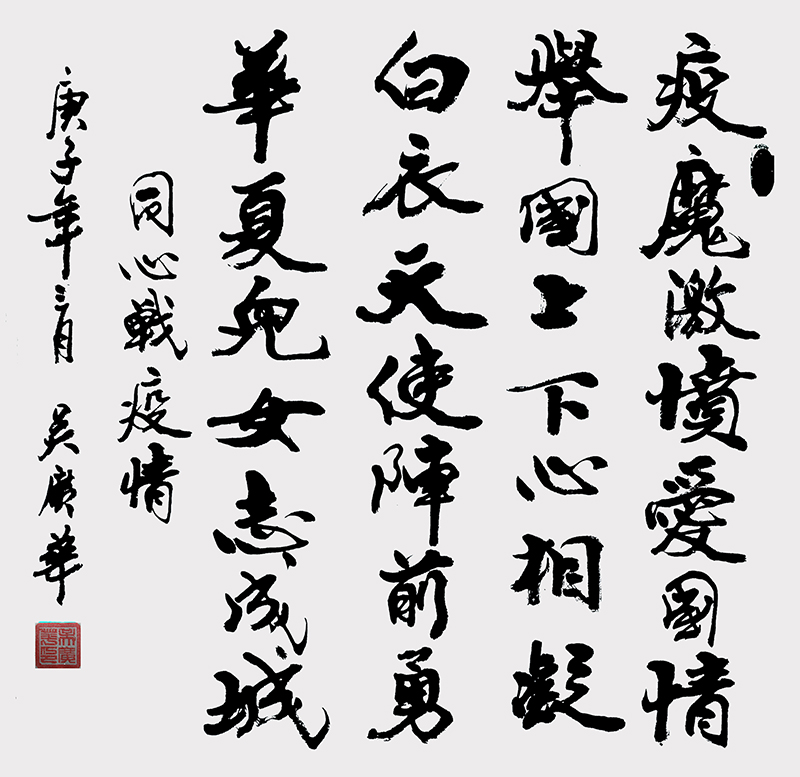 疫魔激憤愛國情
舉國上下心相凝
白衣天使陣前勇
華夏兒女志成城
同心戰疫情
庚子年三月 吴廣華